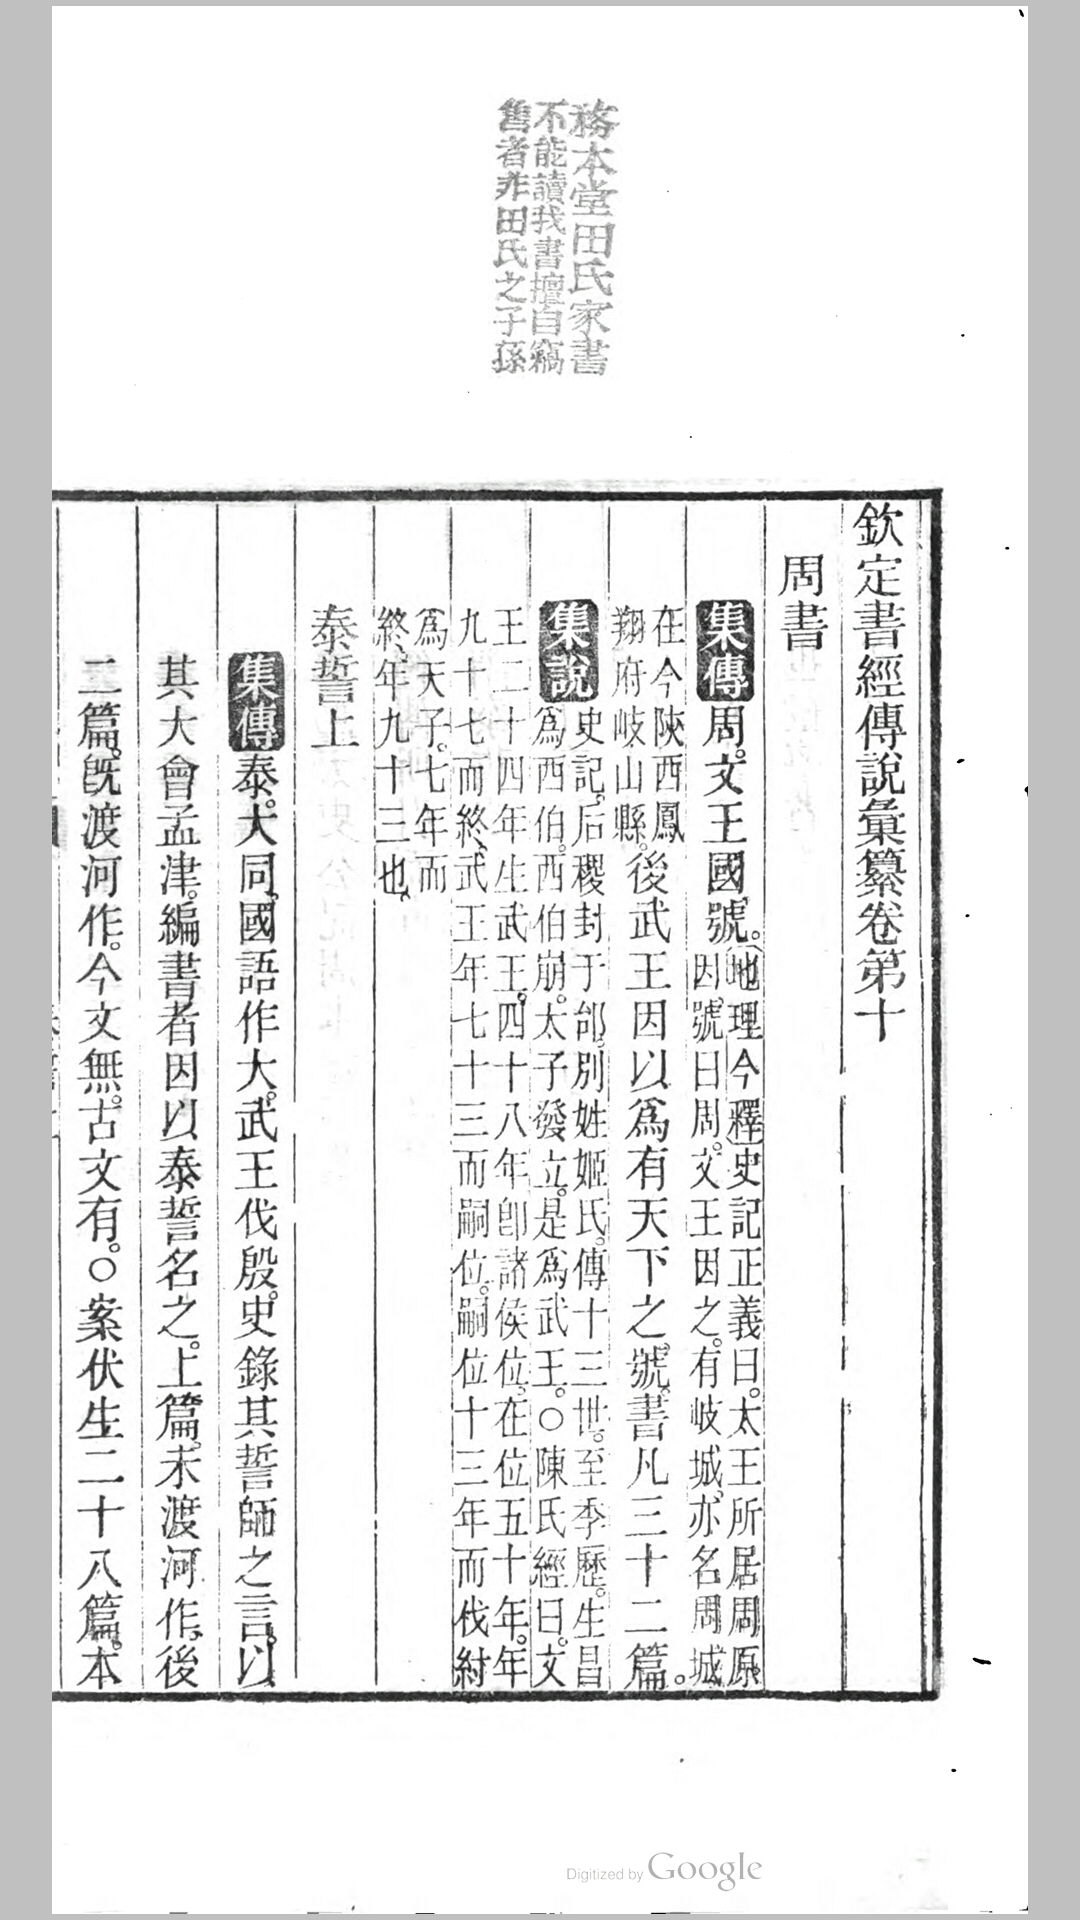 務本堂田氏家書
不能讀我書擅自竊
售者非田氏之子孫
欽定書經傳說彙纂卷第十
周書
集傳周文王國號。地理今釋史記正義曰。太王所居周原。
因號曰周。文王因之。有岐城。亦名周城
在今陝西鳳
翔府岐山縣。後武王因以爲有天下之號。書凡三十二篇。
集說史記。后稷封于邰。別姓姬氏。傳十三世。至季歷。生昌
爲西伯。西伯崩。太子發立。是爲武王。○陳氏經曰。文
王二十四年生武王。四十八年卽諸侯位。在位五十年。年
九十七而終。武王年七十三而嗣位。嗣位十三年而伐紂
爲天子。七年而
終、年九十三也、
泰誓上
集傳泰。大同。國語作大。武王伐殷。史錄其誓師之言。以
其大會孟津。編書者因以泰誓名之。上篇。未渡河作。後
二篇。旣渡河作。今文無。古文有。○案伏生二十八篇。本
Digitized by Google